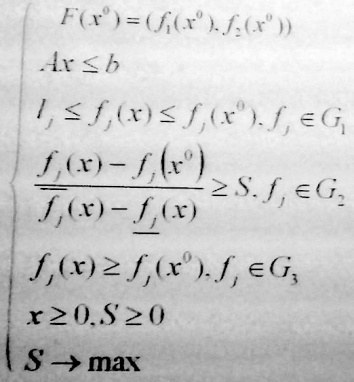 F(x⁰) = (f₁(x⁰), f₂(x⁰))
Ax ≤ b
l_j ≤ f_j(x) ≤ f_j(x⁰), f_j ∈ G₁
f_j(x) − f_j(x⁰)
≥ S, f_j ∈ G₂
f̅_j(x) − f̲_j(x)
f_j(x) ≥ f_j(x⁰), f_j ∈ G₃
x ≥ 0, S ≥ 0
S → max